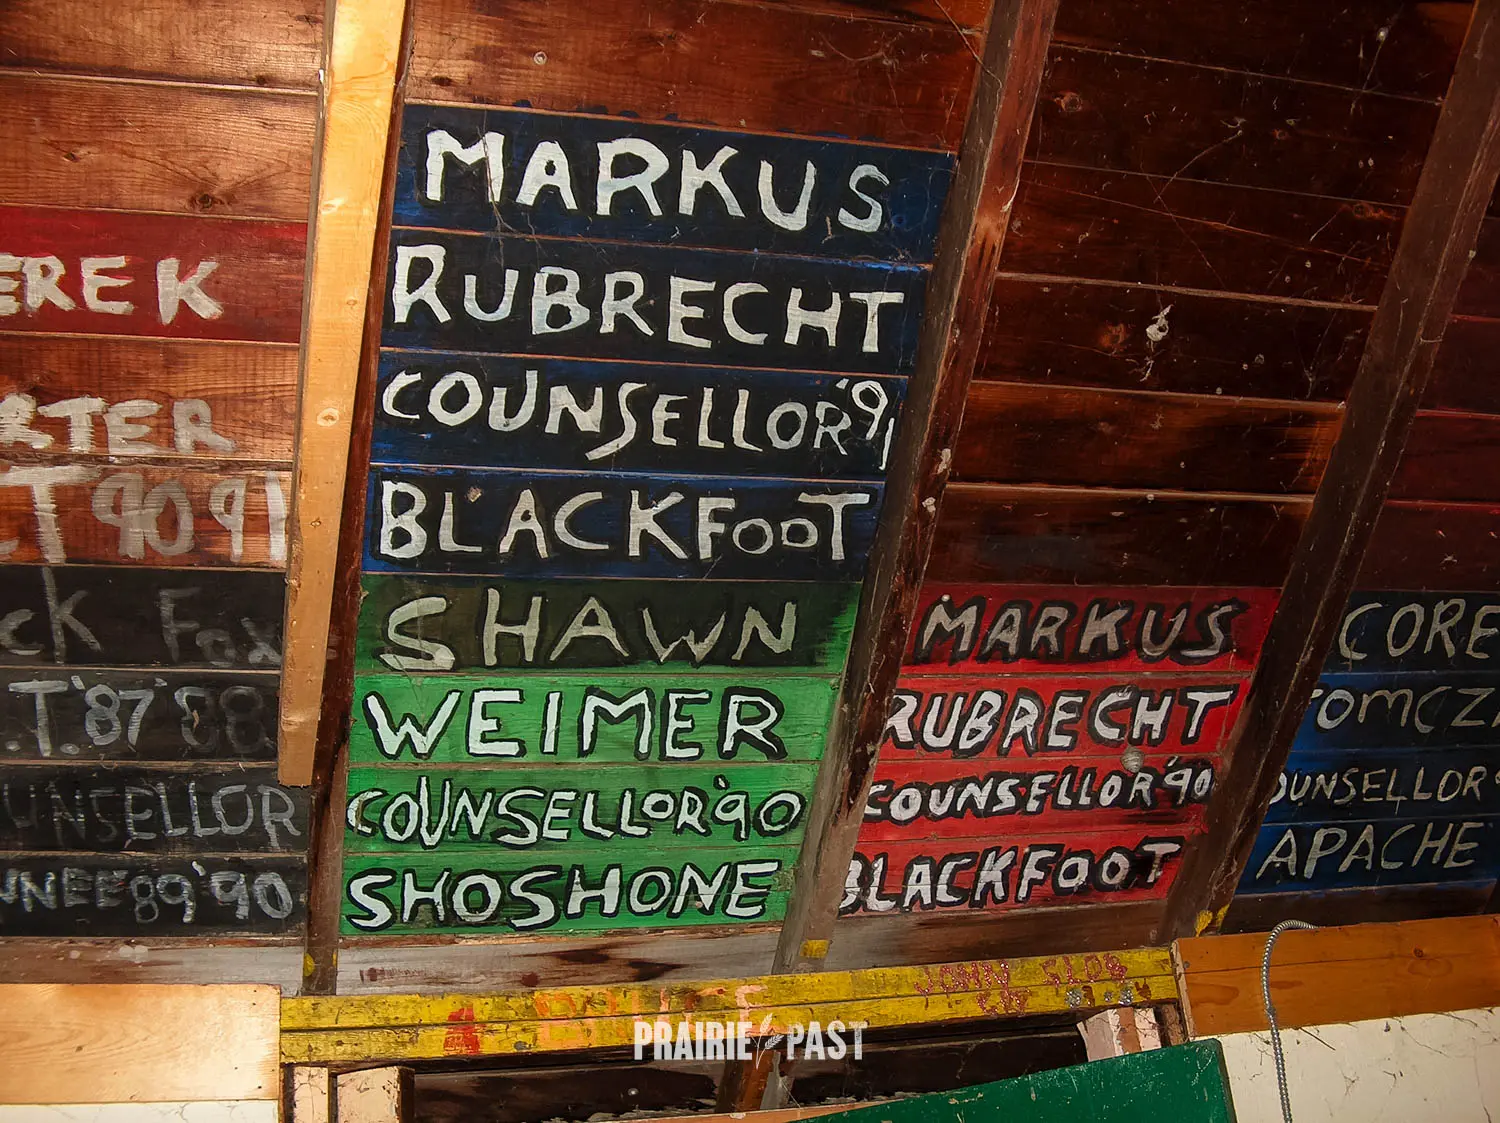 EREK
RTER
CT 90 91
ck Fox
.T. '87 '88
UNSELLOR
WNEE 89 '90
MARKUS
RUBRECHT
COUNSELLOR '91
BLACKFOOT
SHAWN
WEIMER
COUNSELLOR '90
SHOSHONE
MARKUS
RUBRECHT
COUNSELLOR '90
BLACKFOOT
CORE
TOMCZ
OUNSELLOR
APACHE
JOHN
PRAIRIE PAST